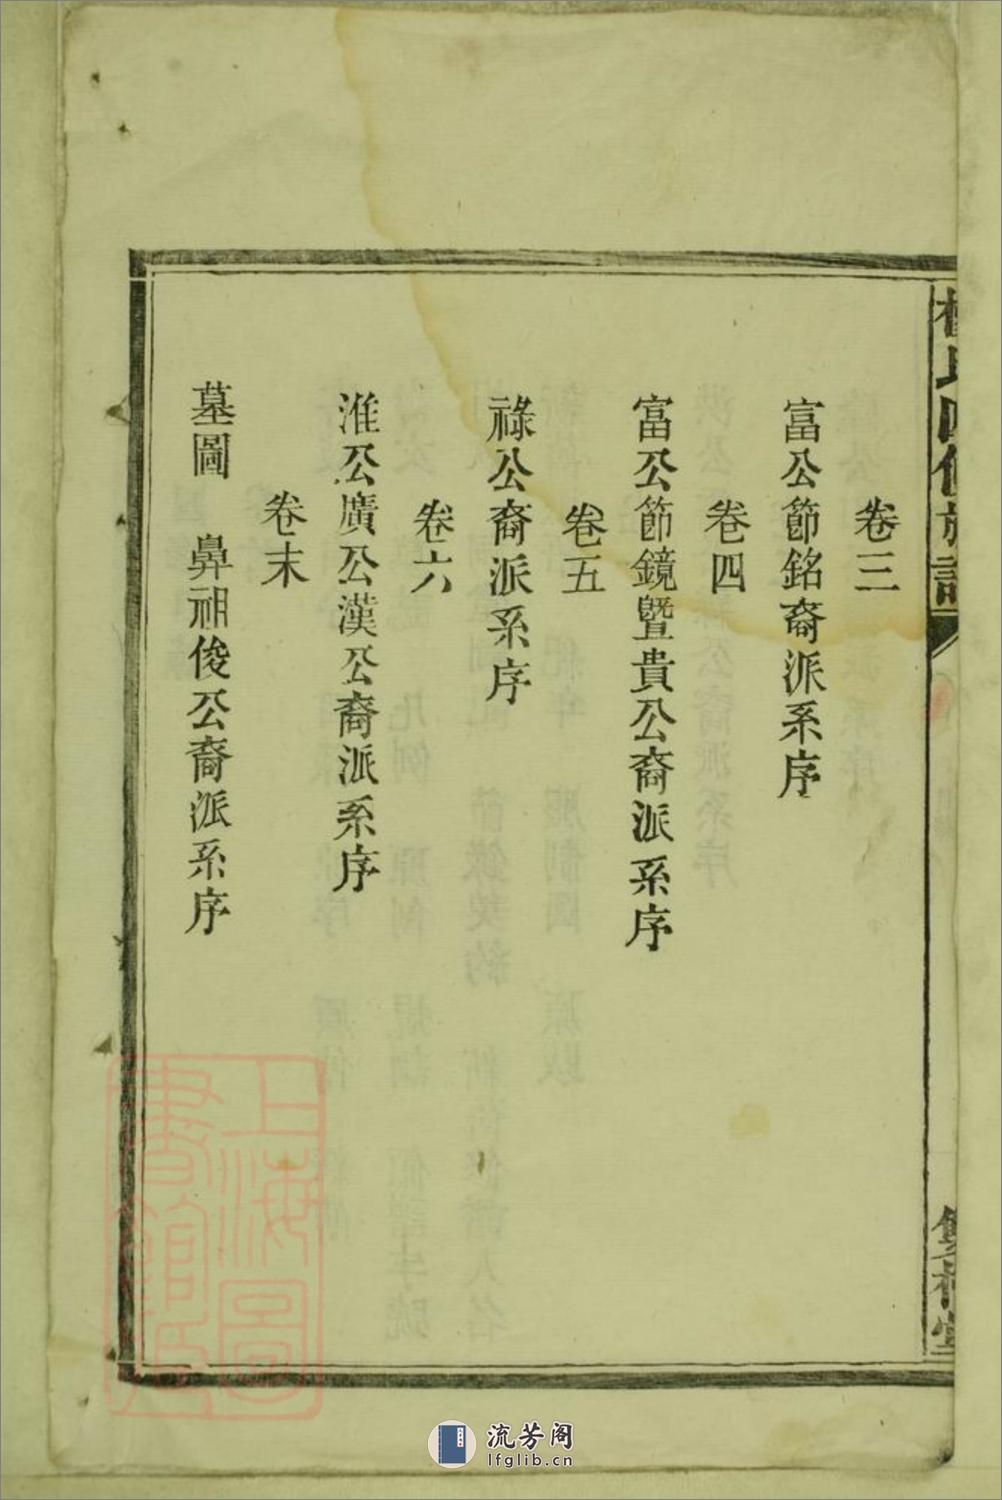 卷三
富公節銘裔派系序
卷四
富公節鏡暨貴公裔派系序
卷五
祿公裔派系序
卷六
淮公廣公漢公裔派系序
卷末
墓圖 鼻祖俊公裔派系序
上海圖
書館藏
流芳阁
lfglib.cn